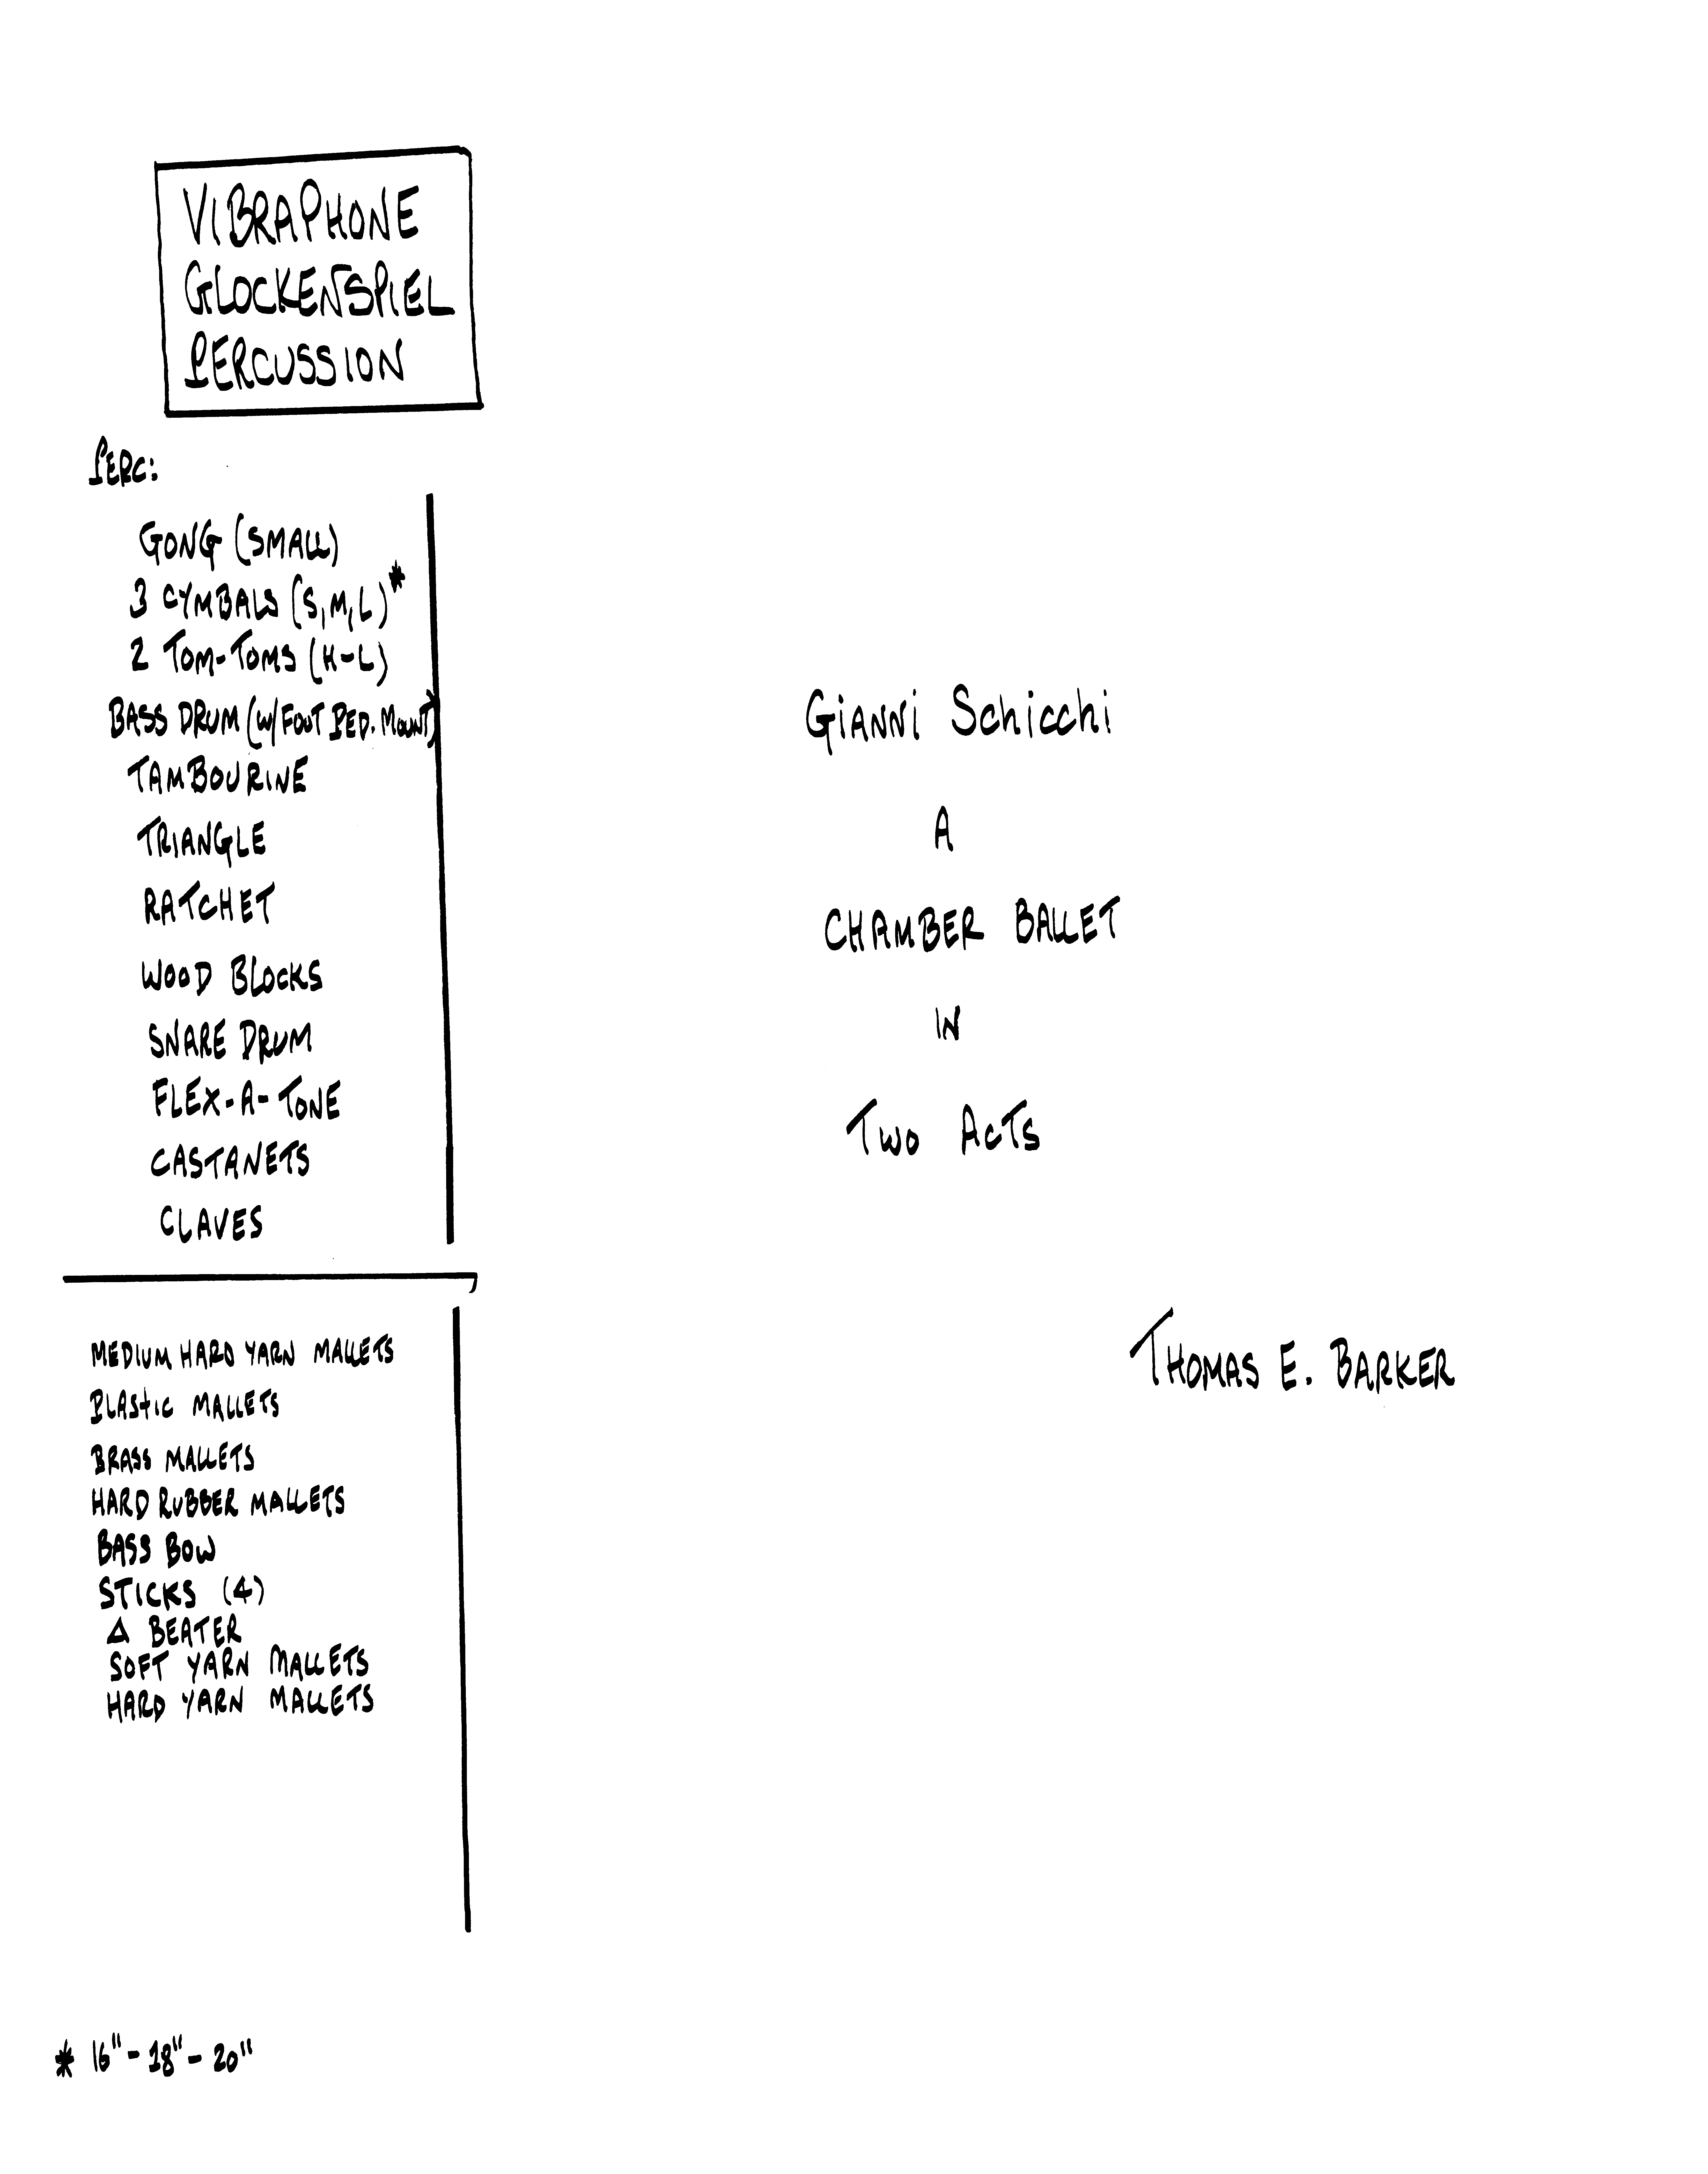 VIBRAPHONE
GLOCKENSPIEL
PERCUSSION
PERC:
GONG (SMALL)
3 CYMBALS (S,M,L)*
2 TOM-TOMS (H-L)
BASS DRUM (W/FOOT PED. MOUNT)
TAMBOURINE
TRIANGLE
RATCHET
WOOD BLOCKS
SNARE DRUM
FLEX-A-TONE
CASTANETS
CLAVES
MEDIUM HARD YARN MALLETS
PLAStIC MALLETS
BRASS MALLETS
HARD RUBBER MALLETS
BASS BOW
STICKS (4)
Δ BEATER
SOFT YARN MALLETS
HARD YARN MALLETS
* 16"-18"-20"
Gianni Schicchi
A
CHAMBER BALLET
IN
TWO ACTS
THOMAS E. BARKER